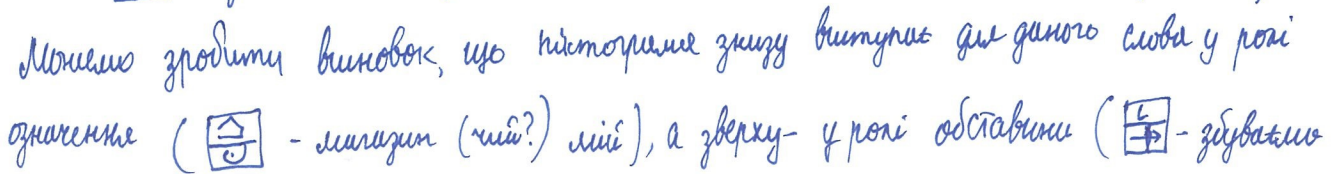 Можемо зробити висновок, що піктограма знизу виступає для даного слова у ролі
означення ( - магазин (чий?) мій), а зверху - у ролі обставини ( - збуваємо